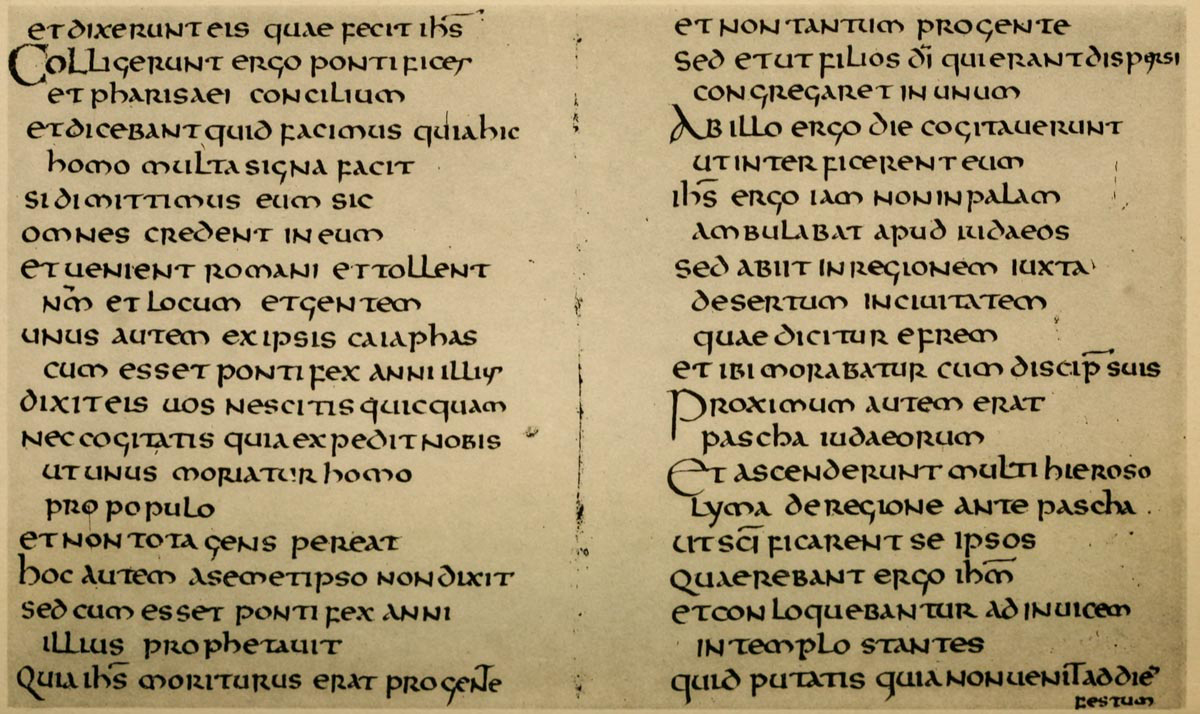 et dixerunt eis quae fecit ihs̅
Colligerunt ergo pontifices
et pharisaei concilium
et dicebant quid facimus quia hic
homo multa signa facit
si dimittimus eum sic
omnes credent in eum
et uenient romani et tollent
nm̅ et locum et gentem
unus autem ex ipsis caiaphas
cum esset pontifex anni illius
dixit eis uos nescitis quicquam
nec cogitatis quia expedit nobis
ut unus moriatur homo
pro populo
et non tota gens pereat
hoc autem a semetipso non dixit
sed cum esset pontifex anni
illius prophetauit
Quia ihs̅ moriturus erat pro gente
et non tantum pro gente
sed et ut filios di̅ qui erant dispersi
congregaret in unum
Ab illo ergo die cogitauerunt
ut interficerent eum
ihs̅ ergo iam non in palam
ambulabat apud iudaeos
sed abiit in regionem iuxta
desertum in ciuitatem
quae dicitur efrem
et ibi morabatur cum discip̅ suis
Proximum autem erat
pascha iudaeorum
Et ascenderunt multi hieroso
lyma de regione ante pascha .
ut sci̅ficarent se ipsos
Quaerebant ergo ihm̅
et conloquebantur ad inuicem
in templo stantes
quid putatis quia non uenit ad die̅
festum